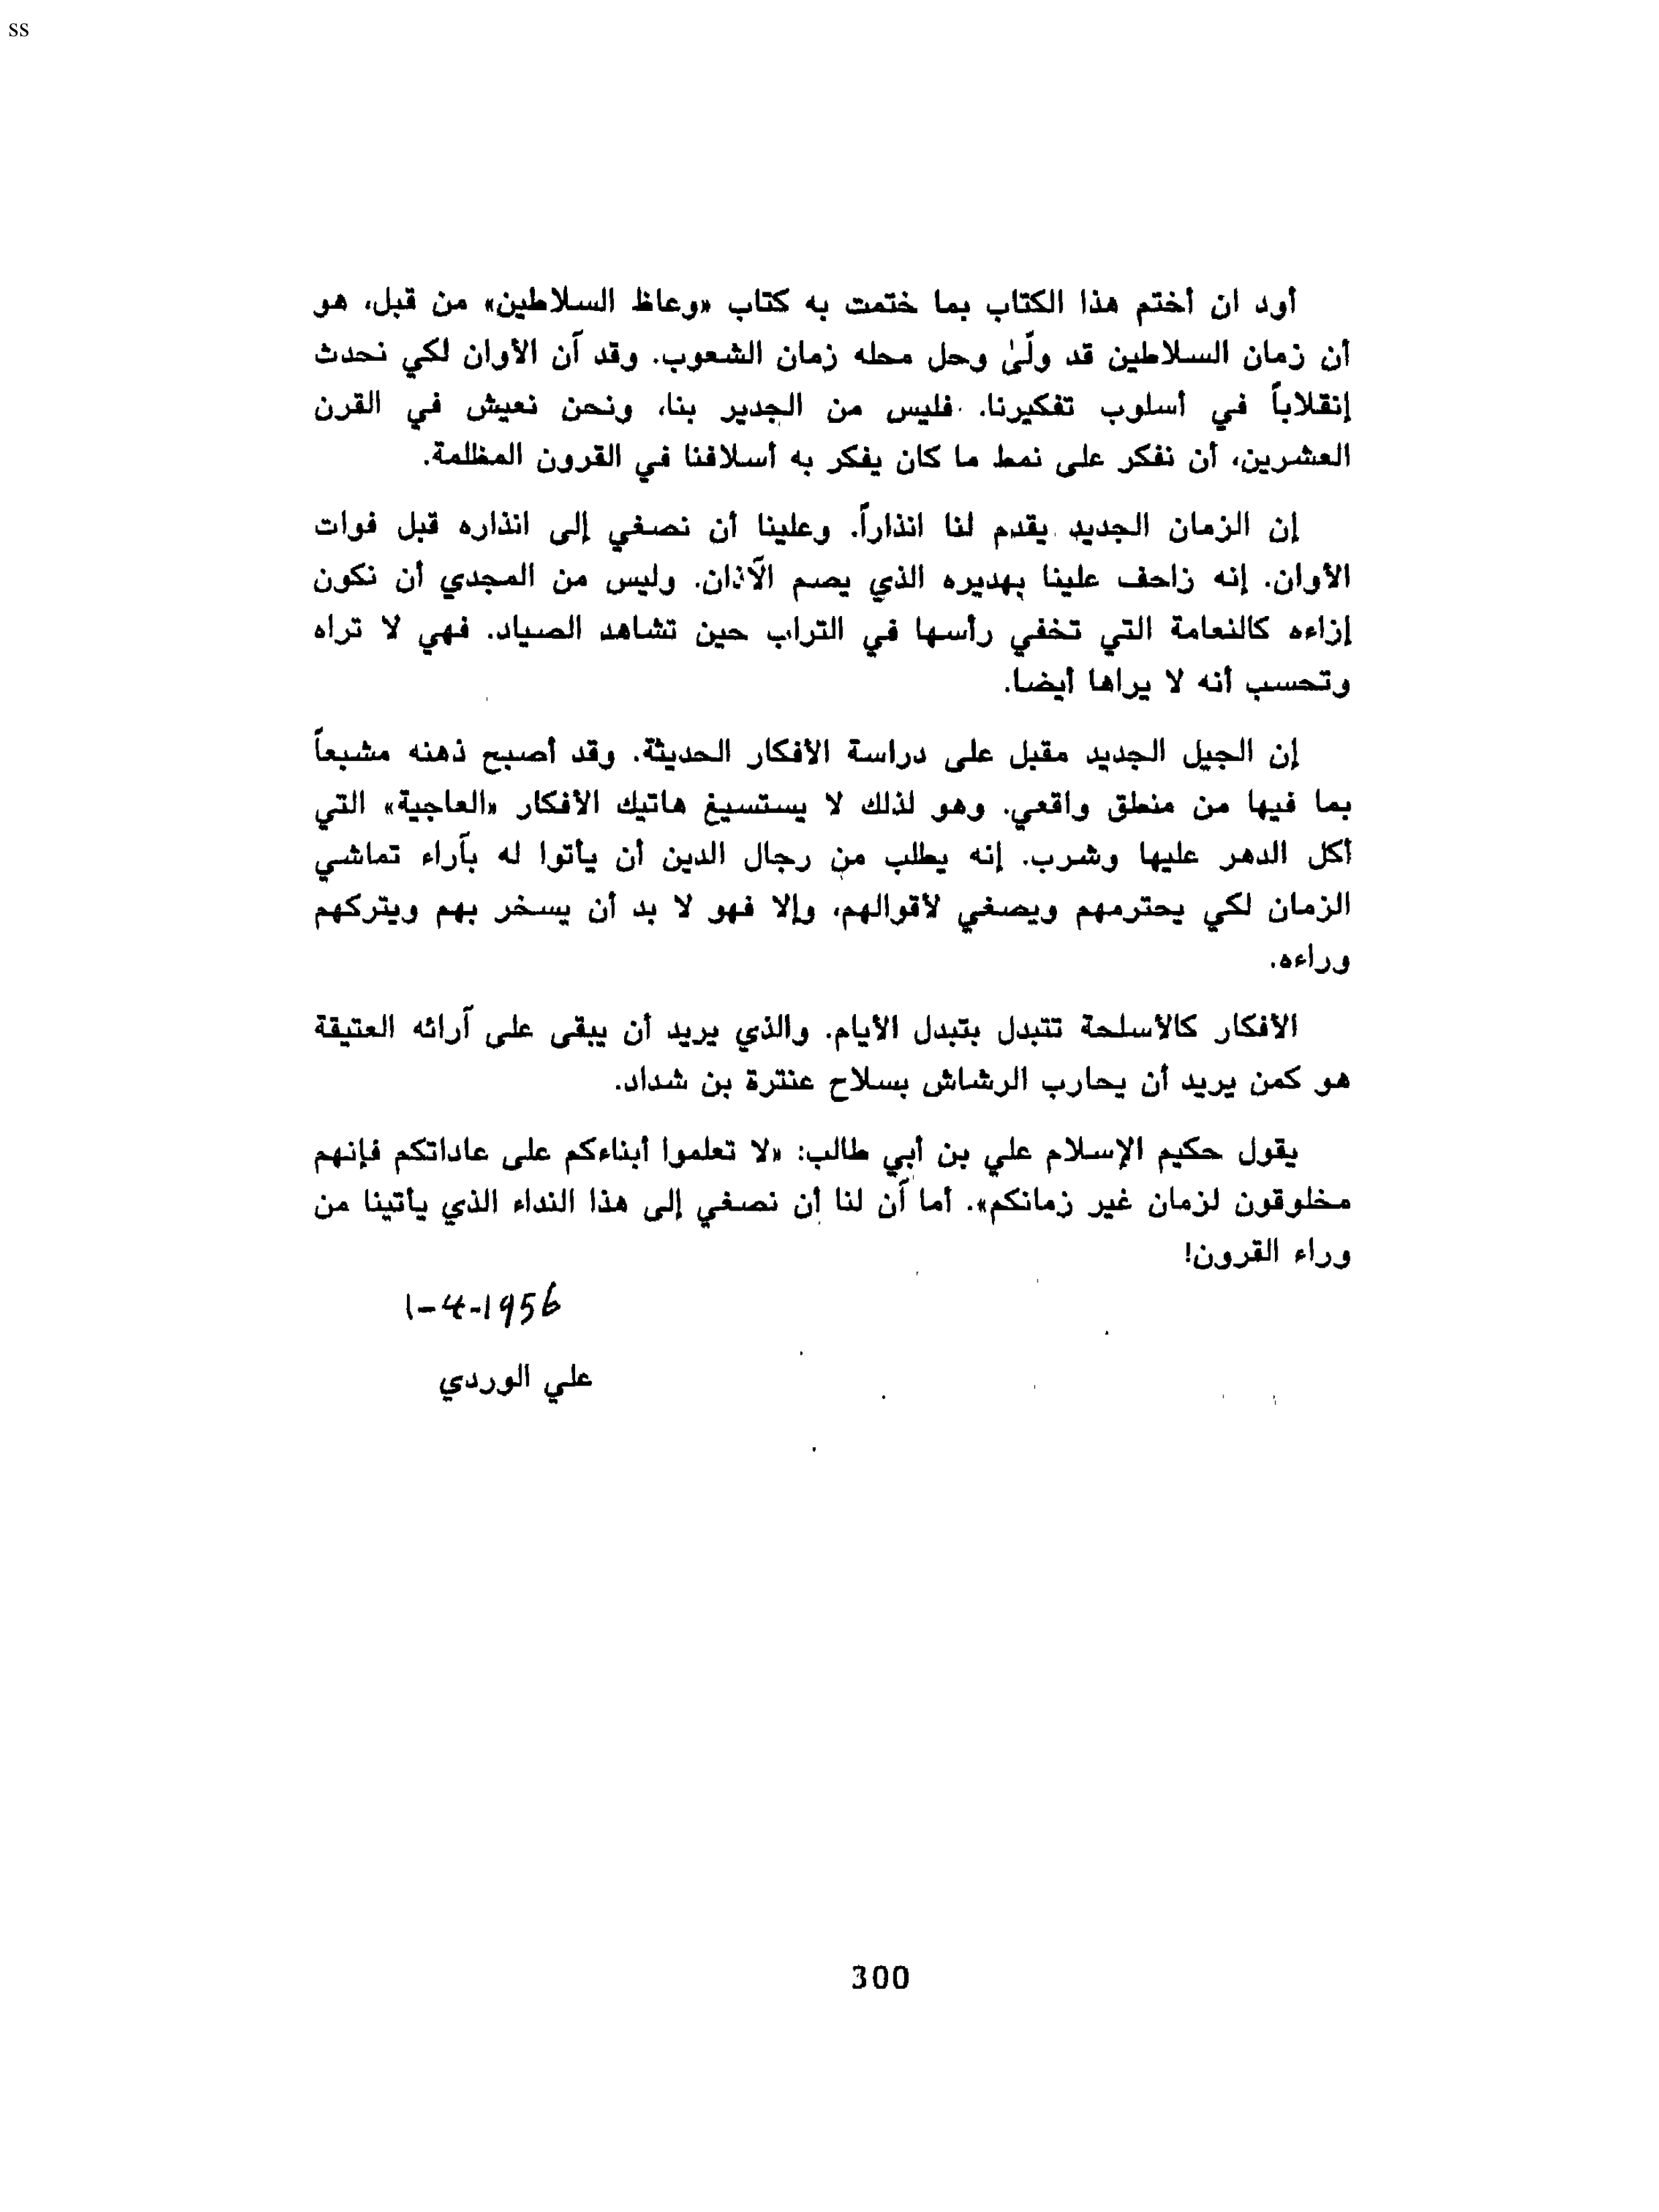 ss
أود ان أختم هذا الكتاب بما ختمت به كتاب «وعاظ السلاطين» من قبل، هو
أن زمان السلاطين قد ولّىٰ وحل محله زمان الشعوب. وقد آن الأوان لكي نحدث
إنقلاباً في أسلوب تفكيرنا. فليس من الجدير بنا، ونحن نعيش في القرن
العشرين، أن نفكر على نمط ما كان يفكر به أسلافنا في القرون المظلمة.
إن الزمان الجديد يقدم لنا انذاراً. وعلينا أن نصغي إلى انذاره قبل فوات
الأوان. إنه زاحف علينا بهديره الذي يصم الآذان. وليس من المجدي أن نكون
إزاءه كالنعامة التي تخفي رأسها في التراب حين تشاهد الصياد. فهي لا تراه
وتحسب أنه لا يراها أيضا.
إن الجيل الجديد مقبل على دراسة الأفكار الحديثة. وقد أصبح ذهنه مشبعاً
بما فيها من منطق واقعي. وهو لذلك لا يستسيغ هاتيك الأفكار «العاجية» التي
أكل الدهر عليها وشرب. إنه يطلب من رجال الدين أن يأتوا له بآراء تماشي
الزمان لكي يحترمهم ويصغي لأقوالهم، وإلا فهو لا بد أن يسخر بهم ويتركهم
وراءه.
الأفكار كالأسلحة تتبدل بتبدل الأيام. والذي يريد أن يبقى على آرائه العتيقة
هو كمن يريد أن يحارب الرشاش بسلاح عنترة بن شداد.
يقول حكيم الإسلام علي بن أبي طالب: «لا تعلموا أبناءكم على عاداتكم فإنهم
مخلوقون لزمان غير زمانكم». أما آن لنا أن نصغي إلى هذا النداء الذي يأتينا من
وراء القرون!
1-4-1956
علي الوردي
300